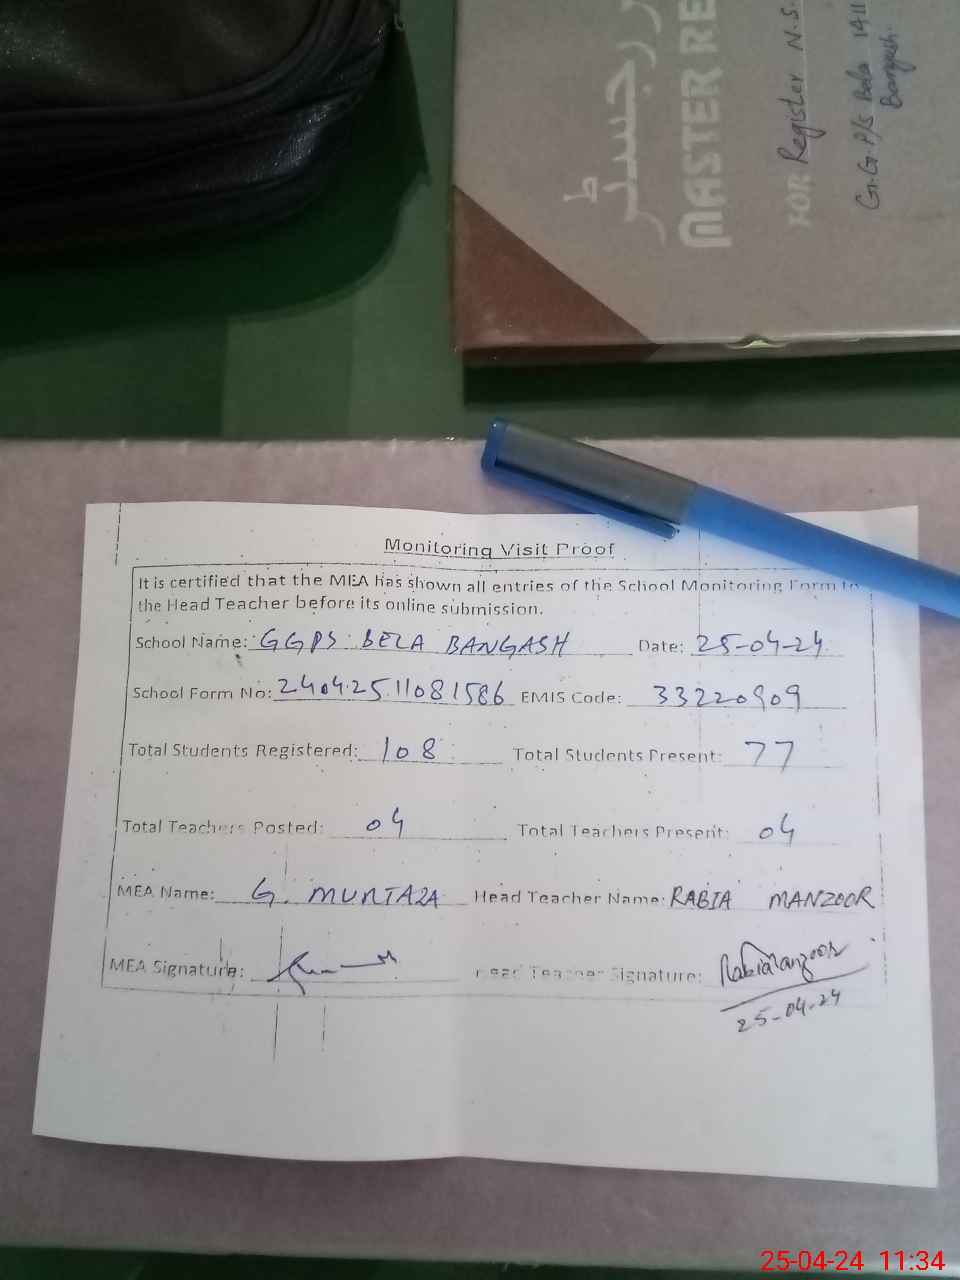 رجسٹر
MASTER RE
FOR Register N.S.
G.G.P/S Bela
Bangash.
Monitoring Visit Proof
It is certified that the MEA has shown all entries of the School Monitoring Form to
the Head Teacher before its online submission.
School Name: GGPS BELA BANGASH Date: 25-04-24
School Form No: 2404.25.11081586 EMIS Code: 33220909
Total Students Registered: 108 Total Students Present: 77
Total Teachers Posted: 04 Total Teachers Present: 04
MEA Name: G. MURTAZA Head Teacher Name: RABIA MANZOOR
MEA Signature: Head Teacher Signature: RabiaManzoor
25-04-24
25-04-24 11:34